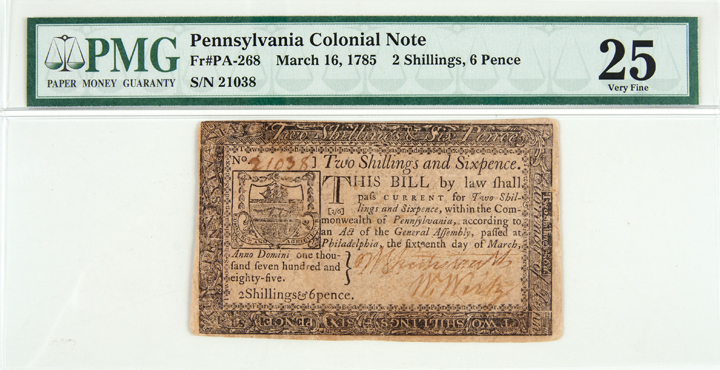 PMG
PAPER MONEY GUARANTY
Pennsylvania Colonial Note
Fr#PA-268 March 16, 1785 2 Shillings, 6 Pence
S/N 21038
25
Very Fine
Two Shillings & Six Pence
No. 21038] Two Shillings and Sixpence.
THIS BILL by law shall
paſs CURRENT for Two Shil-
[2/6] lings and Sixpence, within the Com-
monwealth of Pennſylvania, according to
an Act of the General Aſſembly, paſſed at
Philadelphia, the ſixteenth day of March,
Anno Domini one thou-
ſand ſeven hundred and
eighty-five.
2Shillings&6pence.
TWO SHILLINGS & SIX PENCE